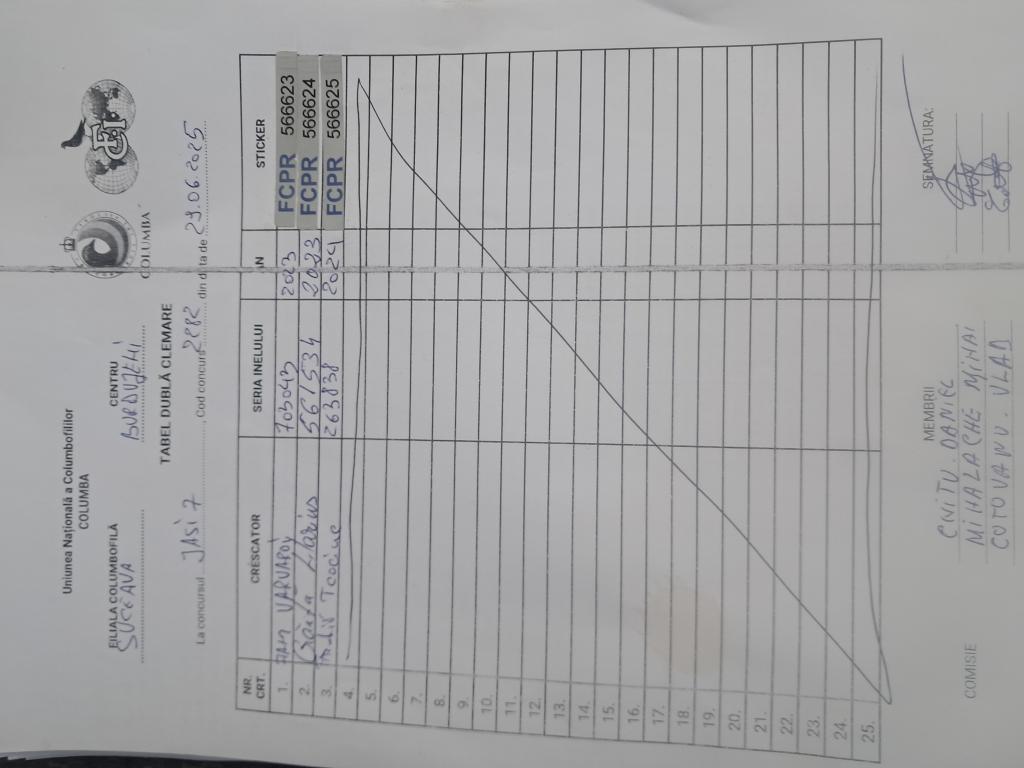 Uniunea Națională a Columbofililor
COLUMBA
COLUMBA
FCI
FILIALA COLUMBOFILĂ CENTRU
SUCEAVA BURDUJENI
TABEL DUBLĂ CLEMARE
La concursul IASI 7, Cod concurs 2882 din data de 29.06.2025
NR. CRT. CRESCATOR SERIA INELULUI AN STICKER
1. VARVAROI 703043 2023 FCPR 566623
2. Marius 561534 2023 FCPR 566624
3. 263838 2024 FCPR 566625
4.
5.
6.
7.
8.
9.
10.
11.
12.
13.
14.
15.
16.
17.
18.
19.
20.
21.
22.
23.
24.
25.
COMISIE MEMBRII SEMNATURA:
DANIEL
MIHALACHE MIHAI
COTOVANU VLAD